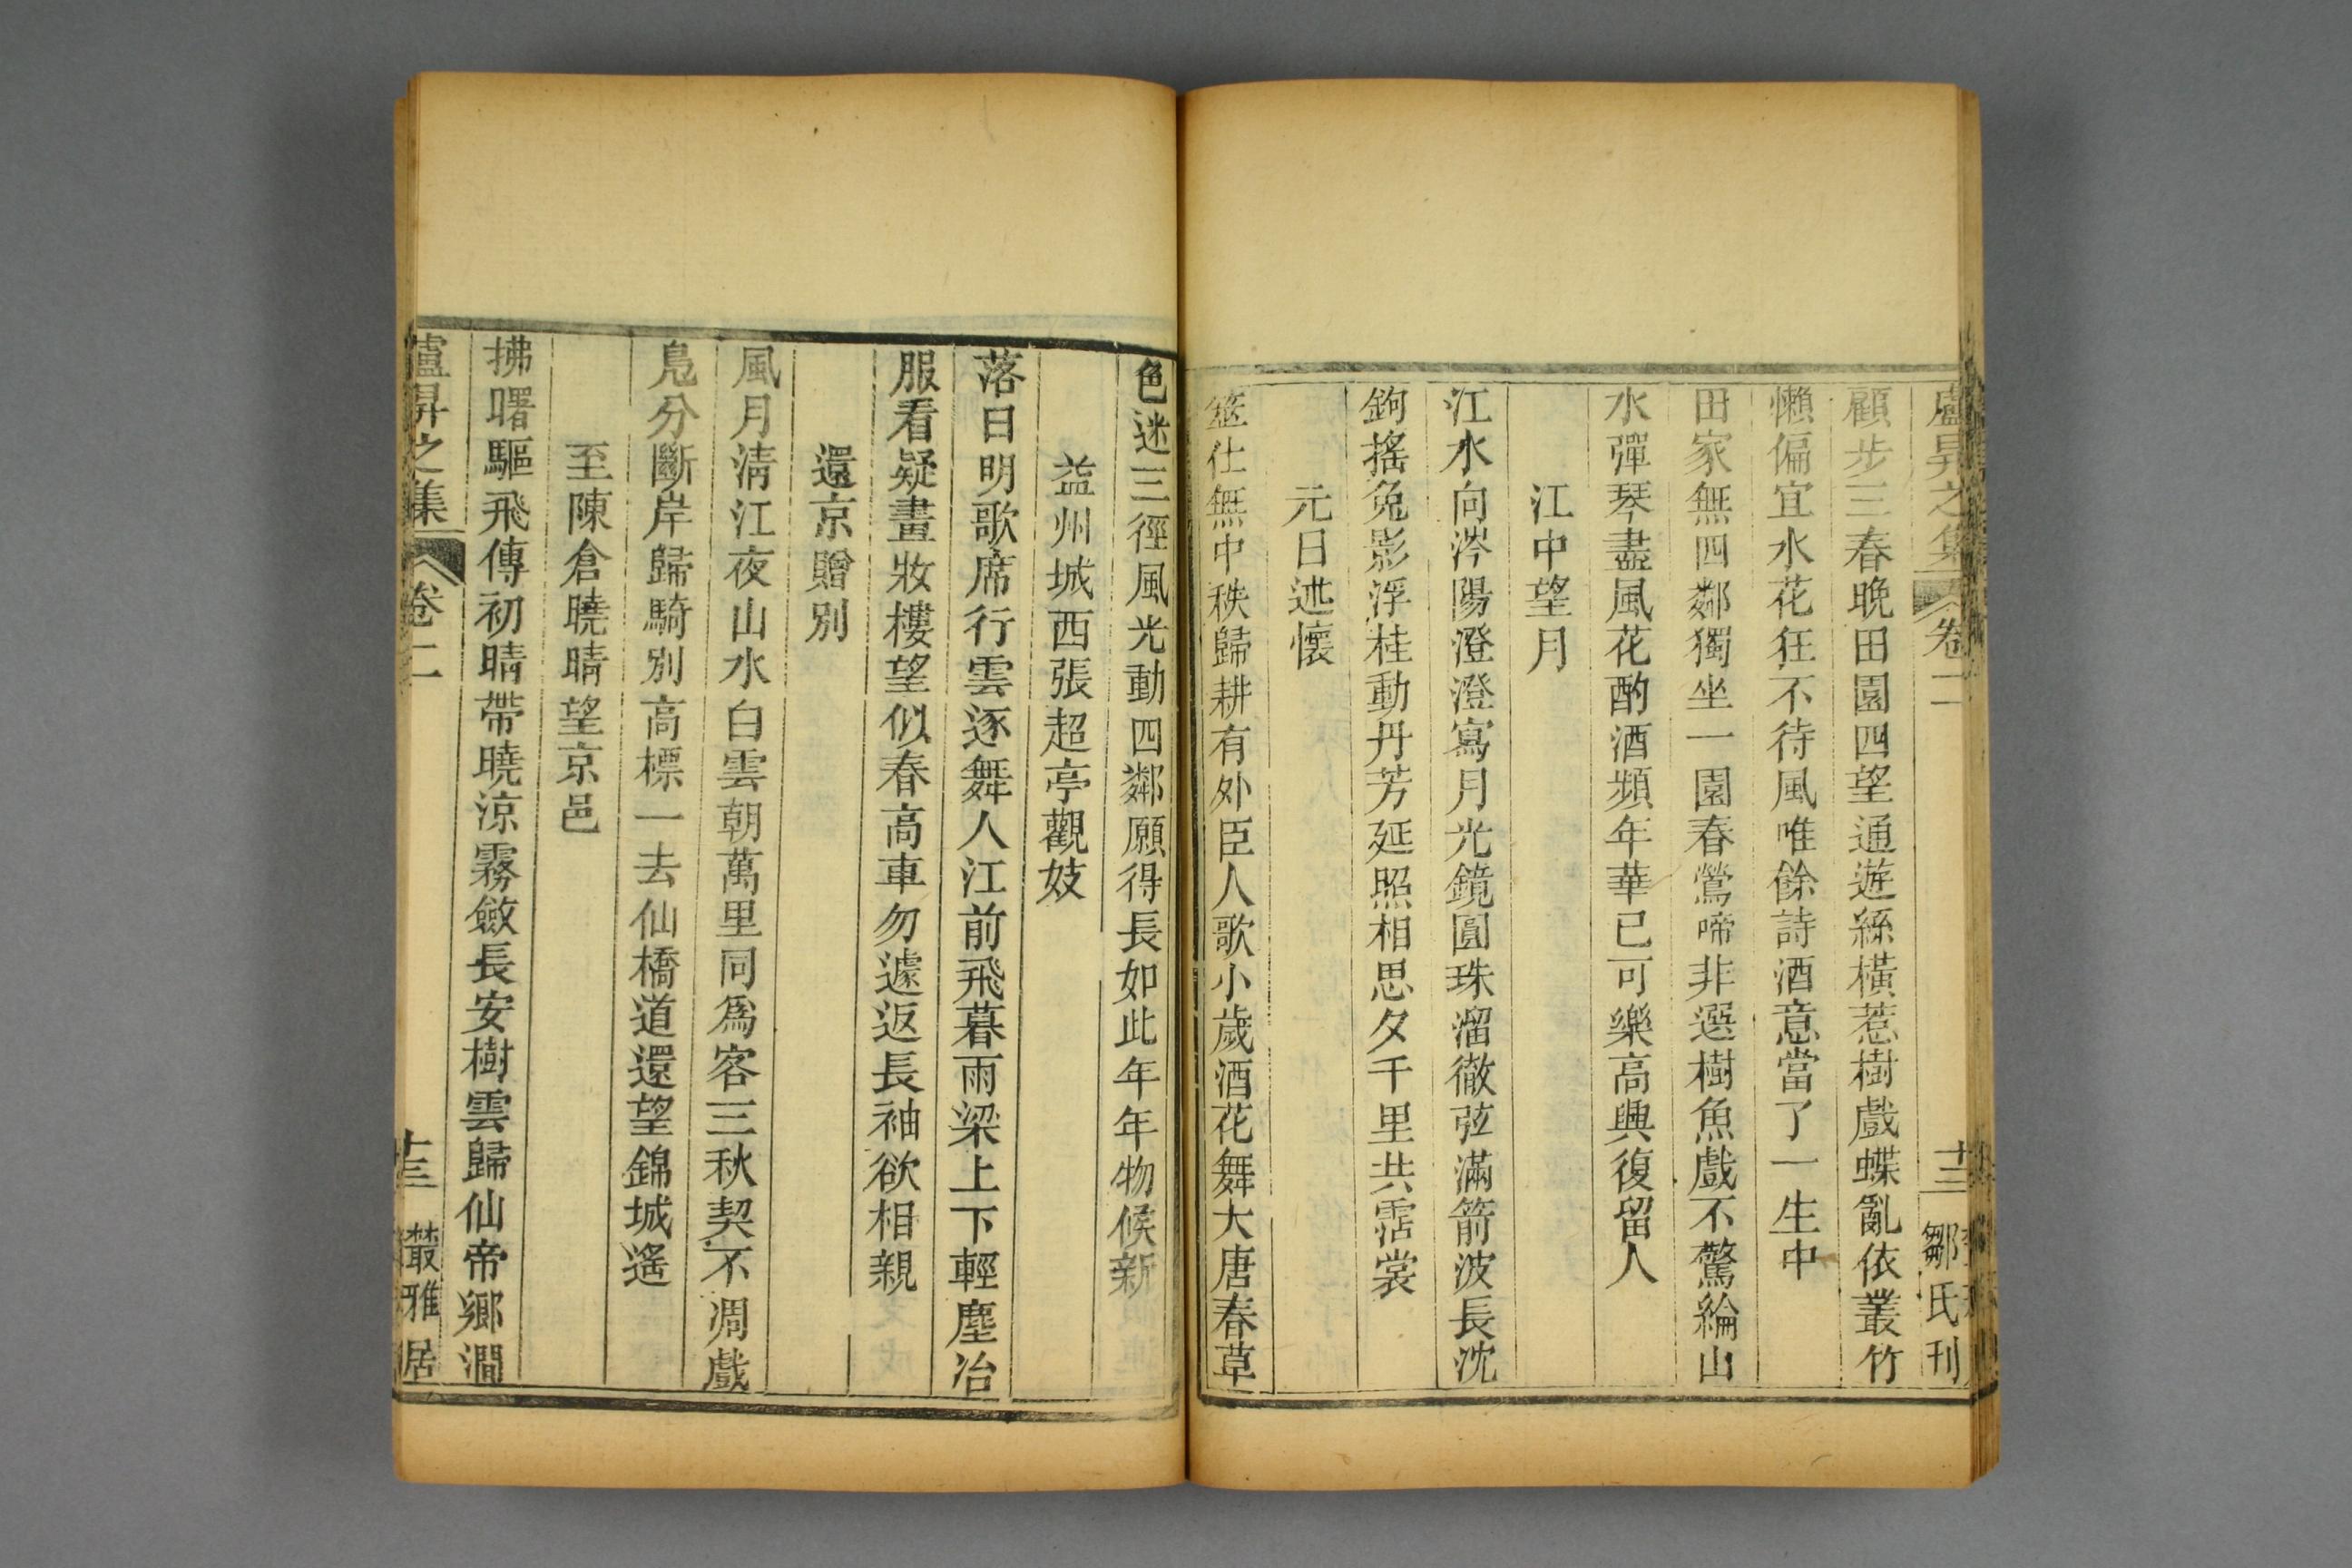 盧昇之集 卷二 十二 鄒氏刊
顧步三春晚田園四望通遊絲橫惹樹戲蝶亂依叢竹
懶偏宜水花狂不待風唯餘詩酒意當了一生中
田家無四鄰獨坐一園春鶯啼非選樹魚戲不驚綸山
水彈琴盡風花酌酒頻年華已可樂高興復留人
江中望月
江水向涔陽澄澄寫月光鏡圓珠溜徹弦滿箭波長沈
鉤搖兔影浮桂動丹芳延照相思夕千里共霑裳
元日述懷
筮仕無中秩歸耕有外臣人歌小歲酒花舞大唐春草
色迷三徑風光動四鄰願得長如此年年物候新
益州城西張超亭觀妓
落日明歌席行雲逐舞人江前飛暮雨梁上下輕塵冶
服看疑畫妝樓望似春高車勿遽返長袖欲相親
還京贈別
風月清江夜山水白雲朝萬里同爲客三秋契不凋戲
鳧分斷岸歸騎別高標一去仙橋道還望錦城遙
至陳倉曉晴望京邑
拂曙驅飛傳初晴帶曉涼霧斂長安樹雲歸仙帝鄉澗
盧昇之集 卷二 十三 叢雅居